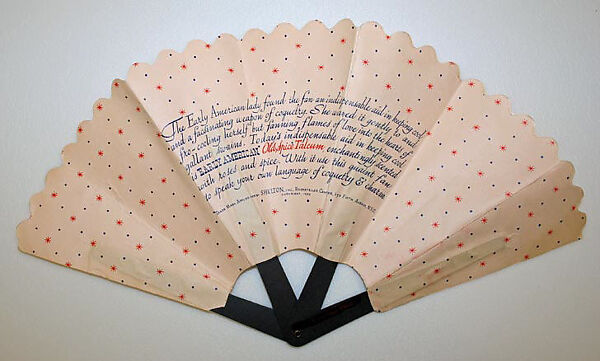 The Early American lady found the fan an indispensable aid in keeping cool
and a fascinating weapon of coquetry. She waved it gently to and
fro cooling herself but fanning flames of love into the hearts of
gallant swains. Today's indispensable aid in keeping cool
is EARLY AMERICAN Old Spice Talcum, enchantingly scented
with roses and spice. With it use this quaint fan
to speak your own language of coquetry & charm.
SHULTON, INC., ROCKEFELLER CENTER, 630 FIFTH AVENUE, N.Y.C.